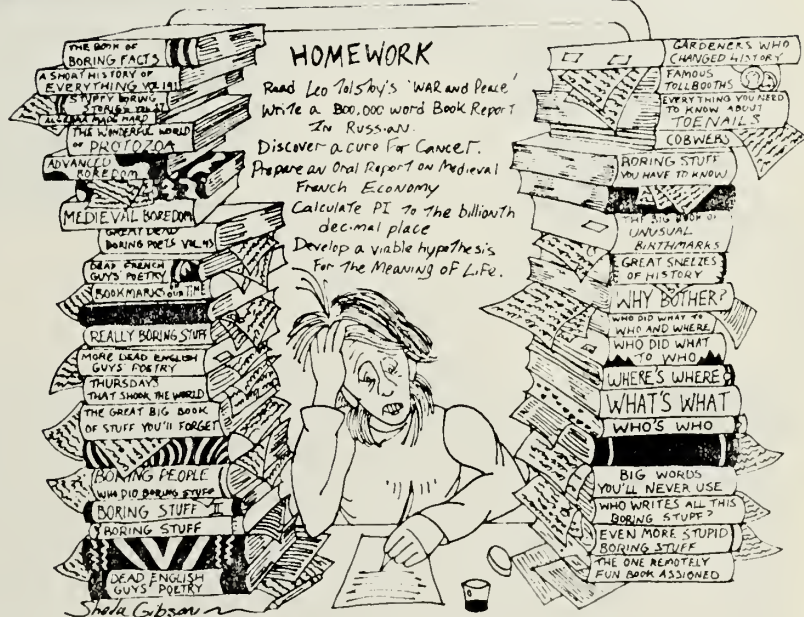 HOMEWORK
Read Leo Tolstoy's 'WAR and Peace'
Write a 800,000 word Book Report
In Russian.
Discover a cure For Cancer.
Prepare an Oral Report on Medieval
French Economy
Calculate PI To the billionth
decimal place
Develop a viable hypothesis
For The Meaning of Life.
THE BOOK OF
BORING FACTS
A SHORT HISTORY OF
EVERYTHING VOL 191
STUFFY BORING
STORIES VOL.
ALGEBRA MADE HARD
THE WONDERFUL WORLD
OF PROTOZOA
ADVANCED
BOREDOM
MEDIEVAL BOREDOM
GREAT DEAD
BORING POETS VOL. 43
DEAD FRENCH
GUYS' POETRY
BOOKMARKS OF OUR TIME
REALLY BORING STUFF
MORE DEAD ENGLISH
GUYS' POETRY
THURSDAYS
THAT SHOOK THE WORLD
THE GREAT BIG BOOK
OF STUFF YOU'LL FORGET
BORING PEOPLE
WHO DID BORING STUFF
BORING STUFF II
BORING STUFF
DEAD ENGLISH
GUYS' POETRY
GARDENERS WHO
CHANGED HISTORY
FAMOUS
TOLLBOOTHS
EVERYTHING YOU NEED
TO KNOW ABOUT
TOENAILS
COBWEBS
BORING STUFF
YOU HAVE TO KNOW
THE BIG BOOK OF
UNUSUAL
BIRTHMARKS
GREAT SNEEZES
OF HISTORY
WHY BOTHER?
WHO DID WHAT TO
WHO AND WHERE
WHO DID WHAT
TO WHO
WHERE'S WHERE
WHAT'S WHAT
WHO'S WHO
BIG WORDS
YOU'LL NEVER USE
WHO WRITES ALL THIS
BORING STUFF?
EVEN MORE STUPID
BORING STUFF
THE ONE REMOTELY
FUN BOOK ASSIGNED
Sheda Gibson